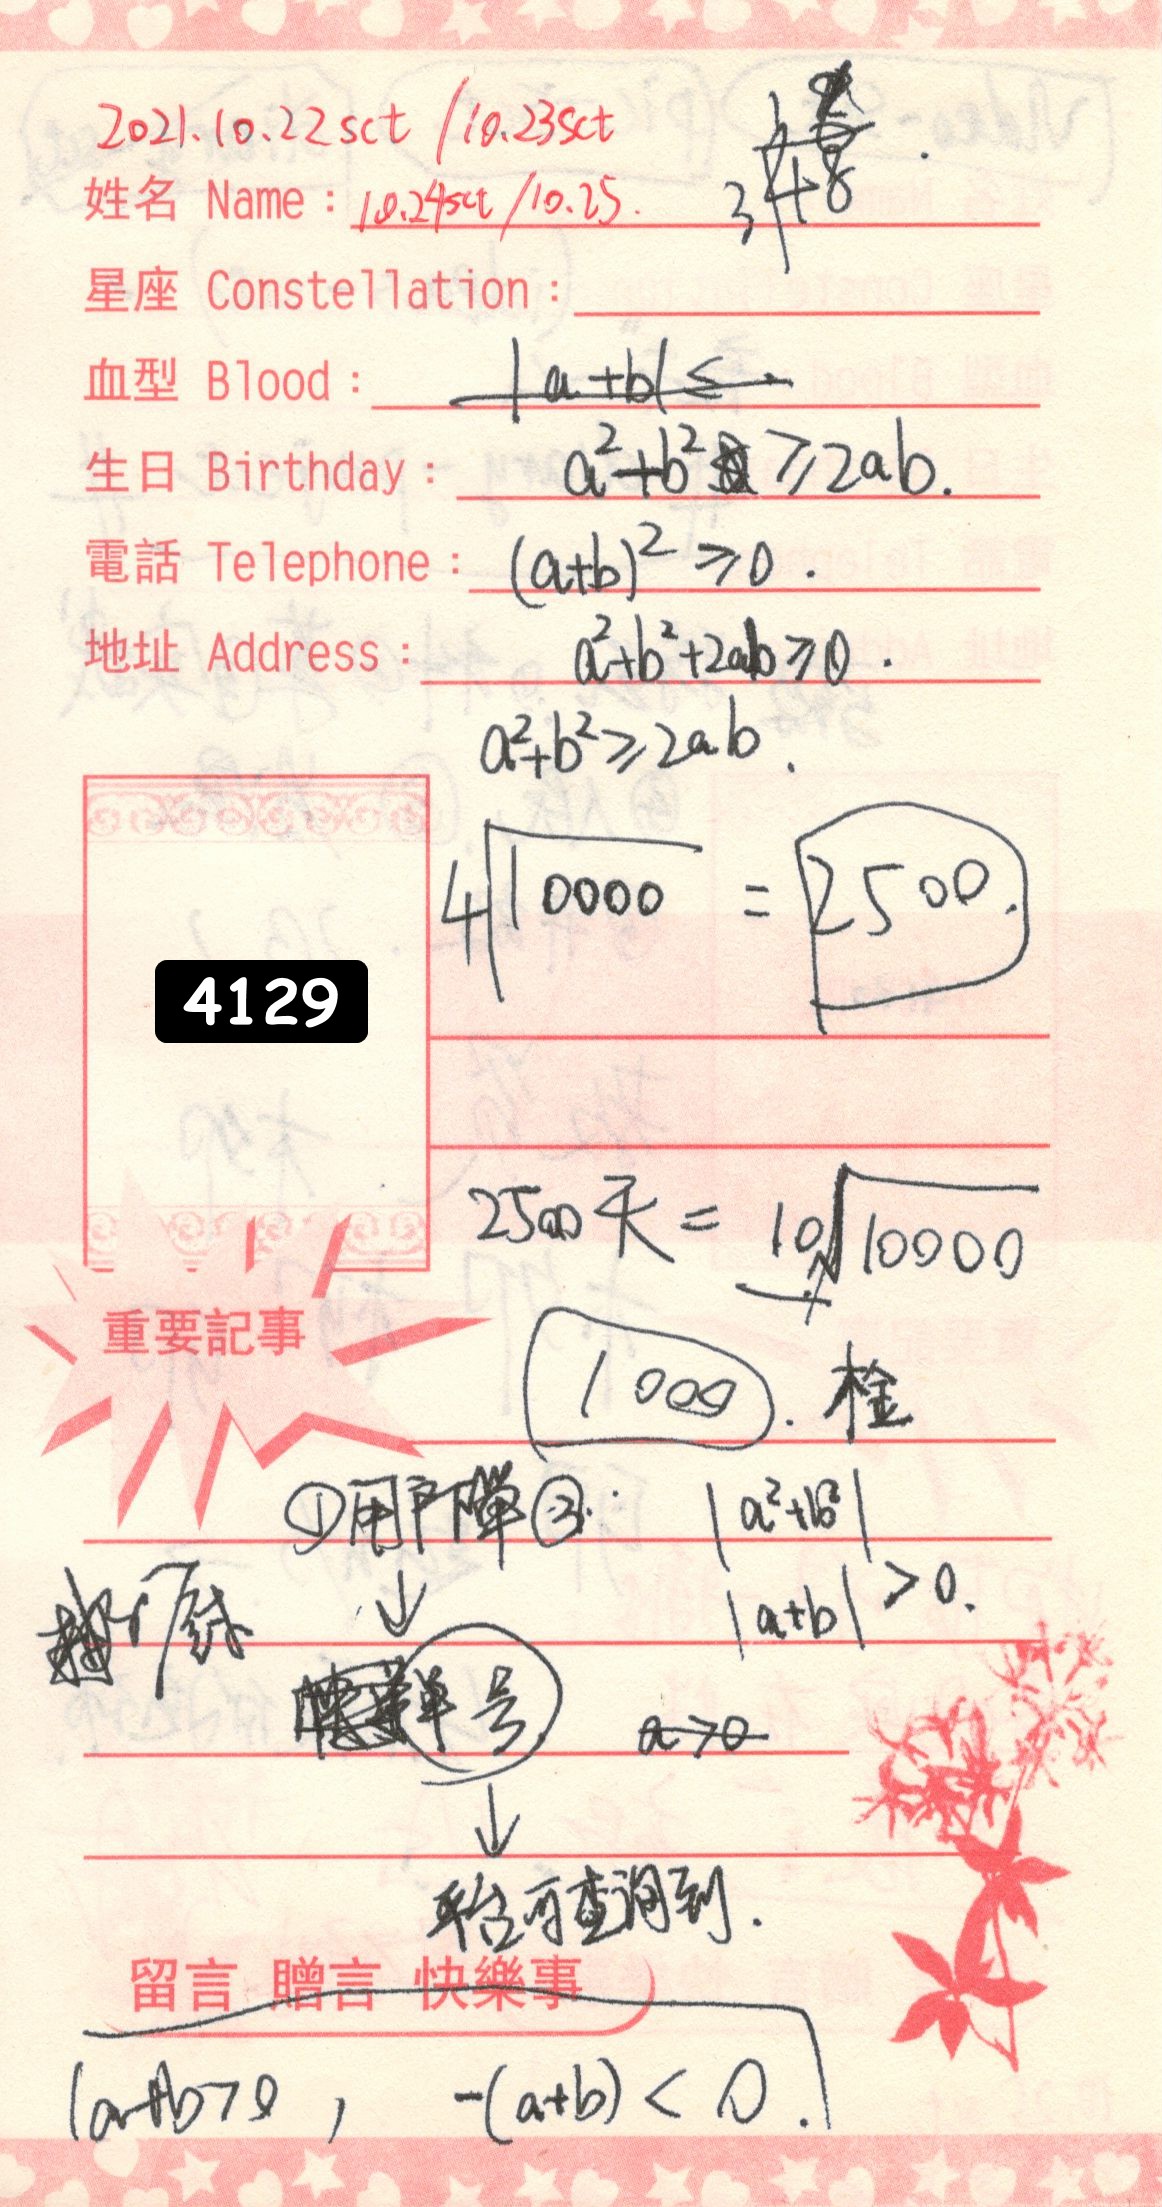 2021.10.22sct /10.23sct
姓名 Name：10.24sct /10.25.
3 4+8
星座 Constellation：
血型 Blood： |a+b| ≤
生日 Birthday： a²+b² ≥2ab.
電話 Telephone： (a+b)² ≥0.
地址 Address： a²+b²+2ab≥0.
a²+b²≥2ab.
4 10000 = 2500.
4129
2500天 = 10 10000
重要記事
1000. 栓
①用户 单 ②: |a²+b²|
|a+b| >0.
单号 a>0
平台可查询到.
留言 贈言 快樂事
|a+b>0, -(a+b) < 0.